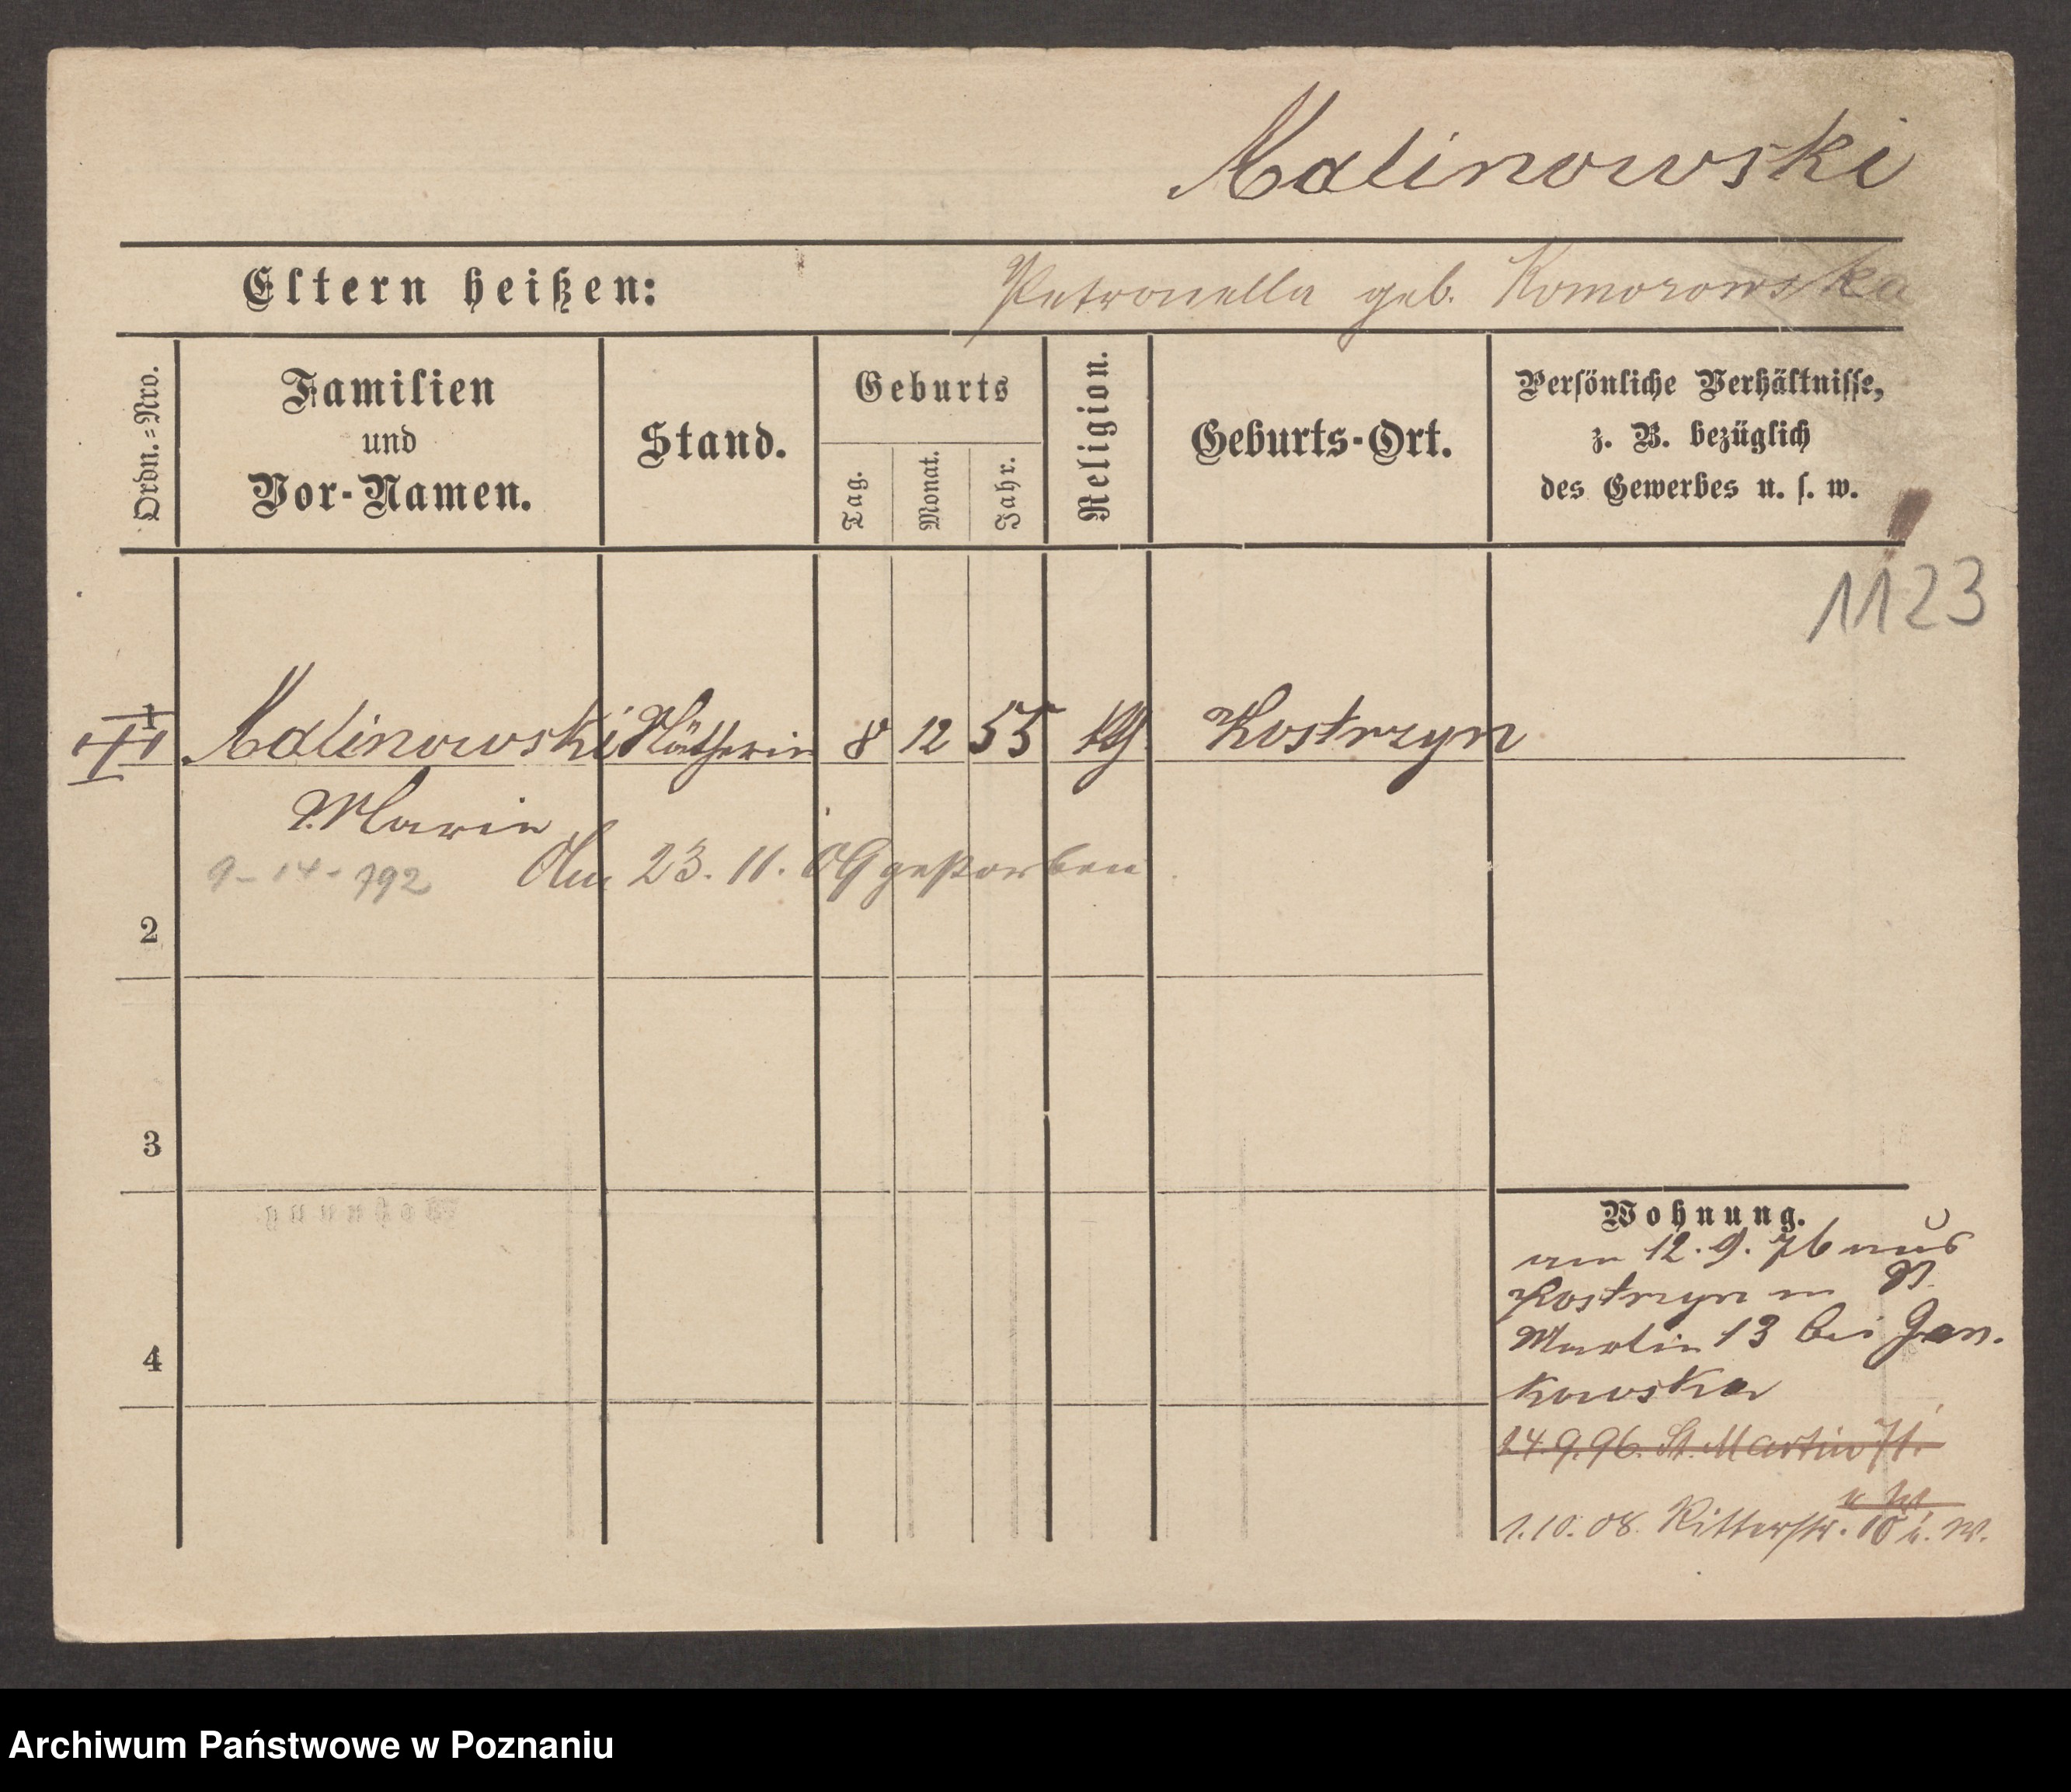 Malinowski
Eltern heißen: Petronella geb. Komorowska
Ordn.=Nro.
Familien
und
Vor-Namen.
Stand.
Geburts
Tag.
Monat.
Jahr.
Religion.
Geburts-Ort.
Persönliche Verhältnisse,
z. B. bezüglich
des Gewerbes u. s. w.
1123
1 Malinowski Nätherin 8 12 55 Kostrzyn
Marie
Am 23. 11. 09 gestorben
9-14-792
2
3
4
Wohnung.
am 12. 9. 76 aus
Kostrzyn St.
Martin 13 bei Jan-
kowska
24.9.96. St. Martin 71.
1.10.08. Ritterstr. 10 b. W.
Archiwum Państwowe w Poznaniu